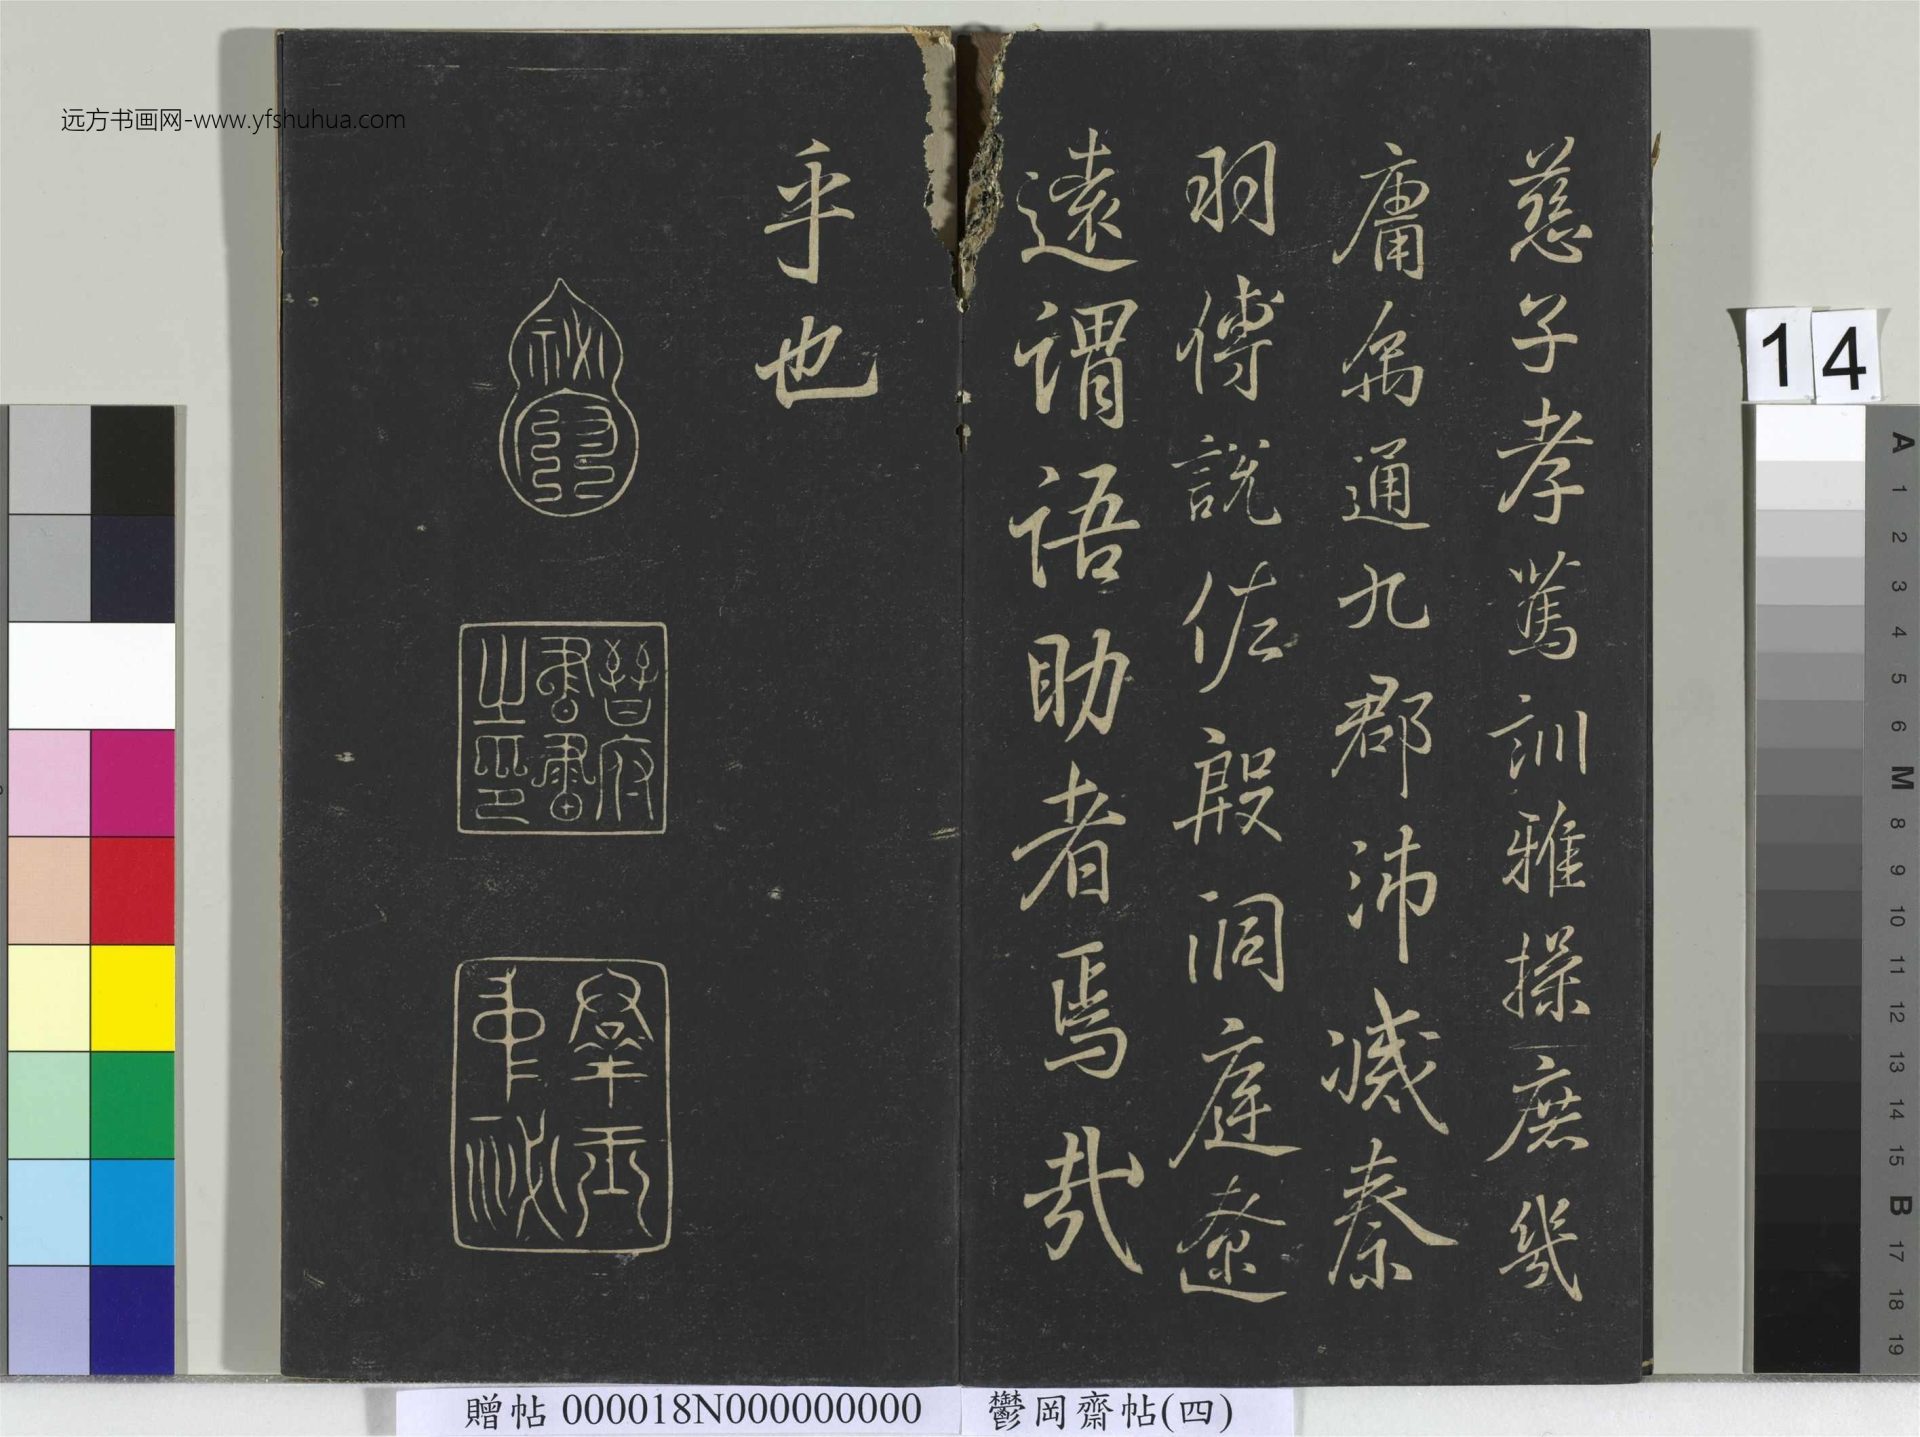 慈子孝篤訓雅操庶幾
庸為通九郡沛滅秦
羽傅說佐殷洞庭遼
遠謂語助者焉哉
乎也
晉府
書畫
之印
远方书画网-www.yfshuhua.com
14
A
1
2
3
4
5
6
M
8
9
10
11
12
13
14
15
B
17
18
19
贈帖 000018N000000000
鬱岡齋帖(四)